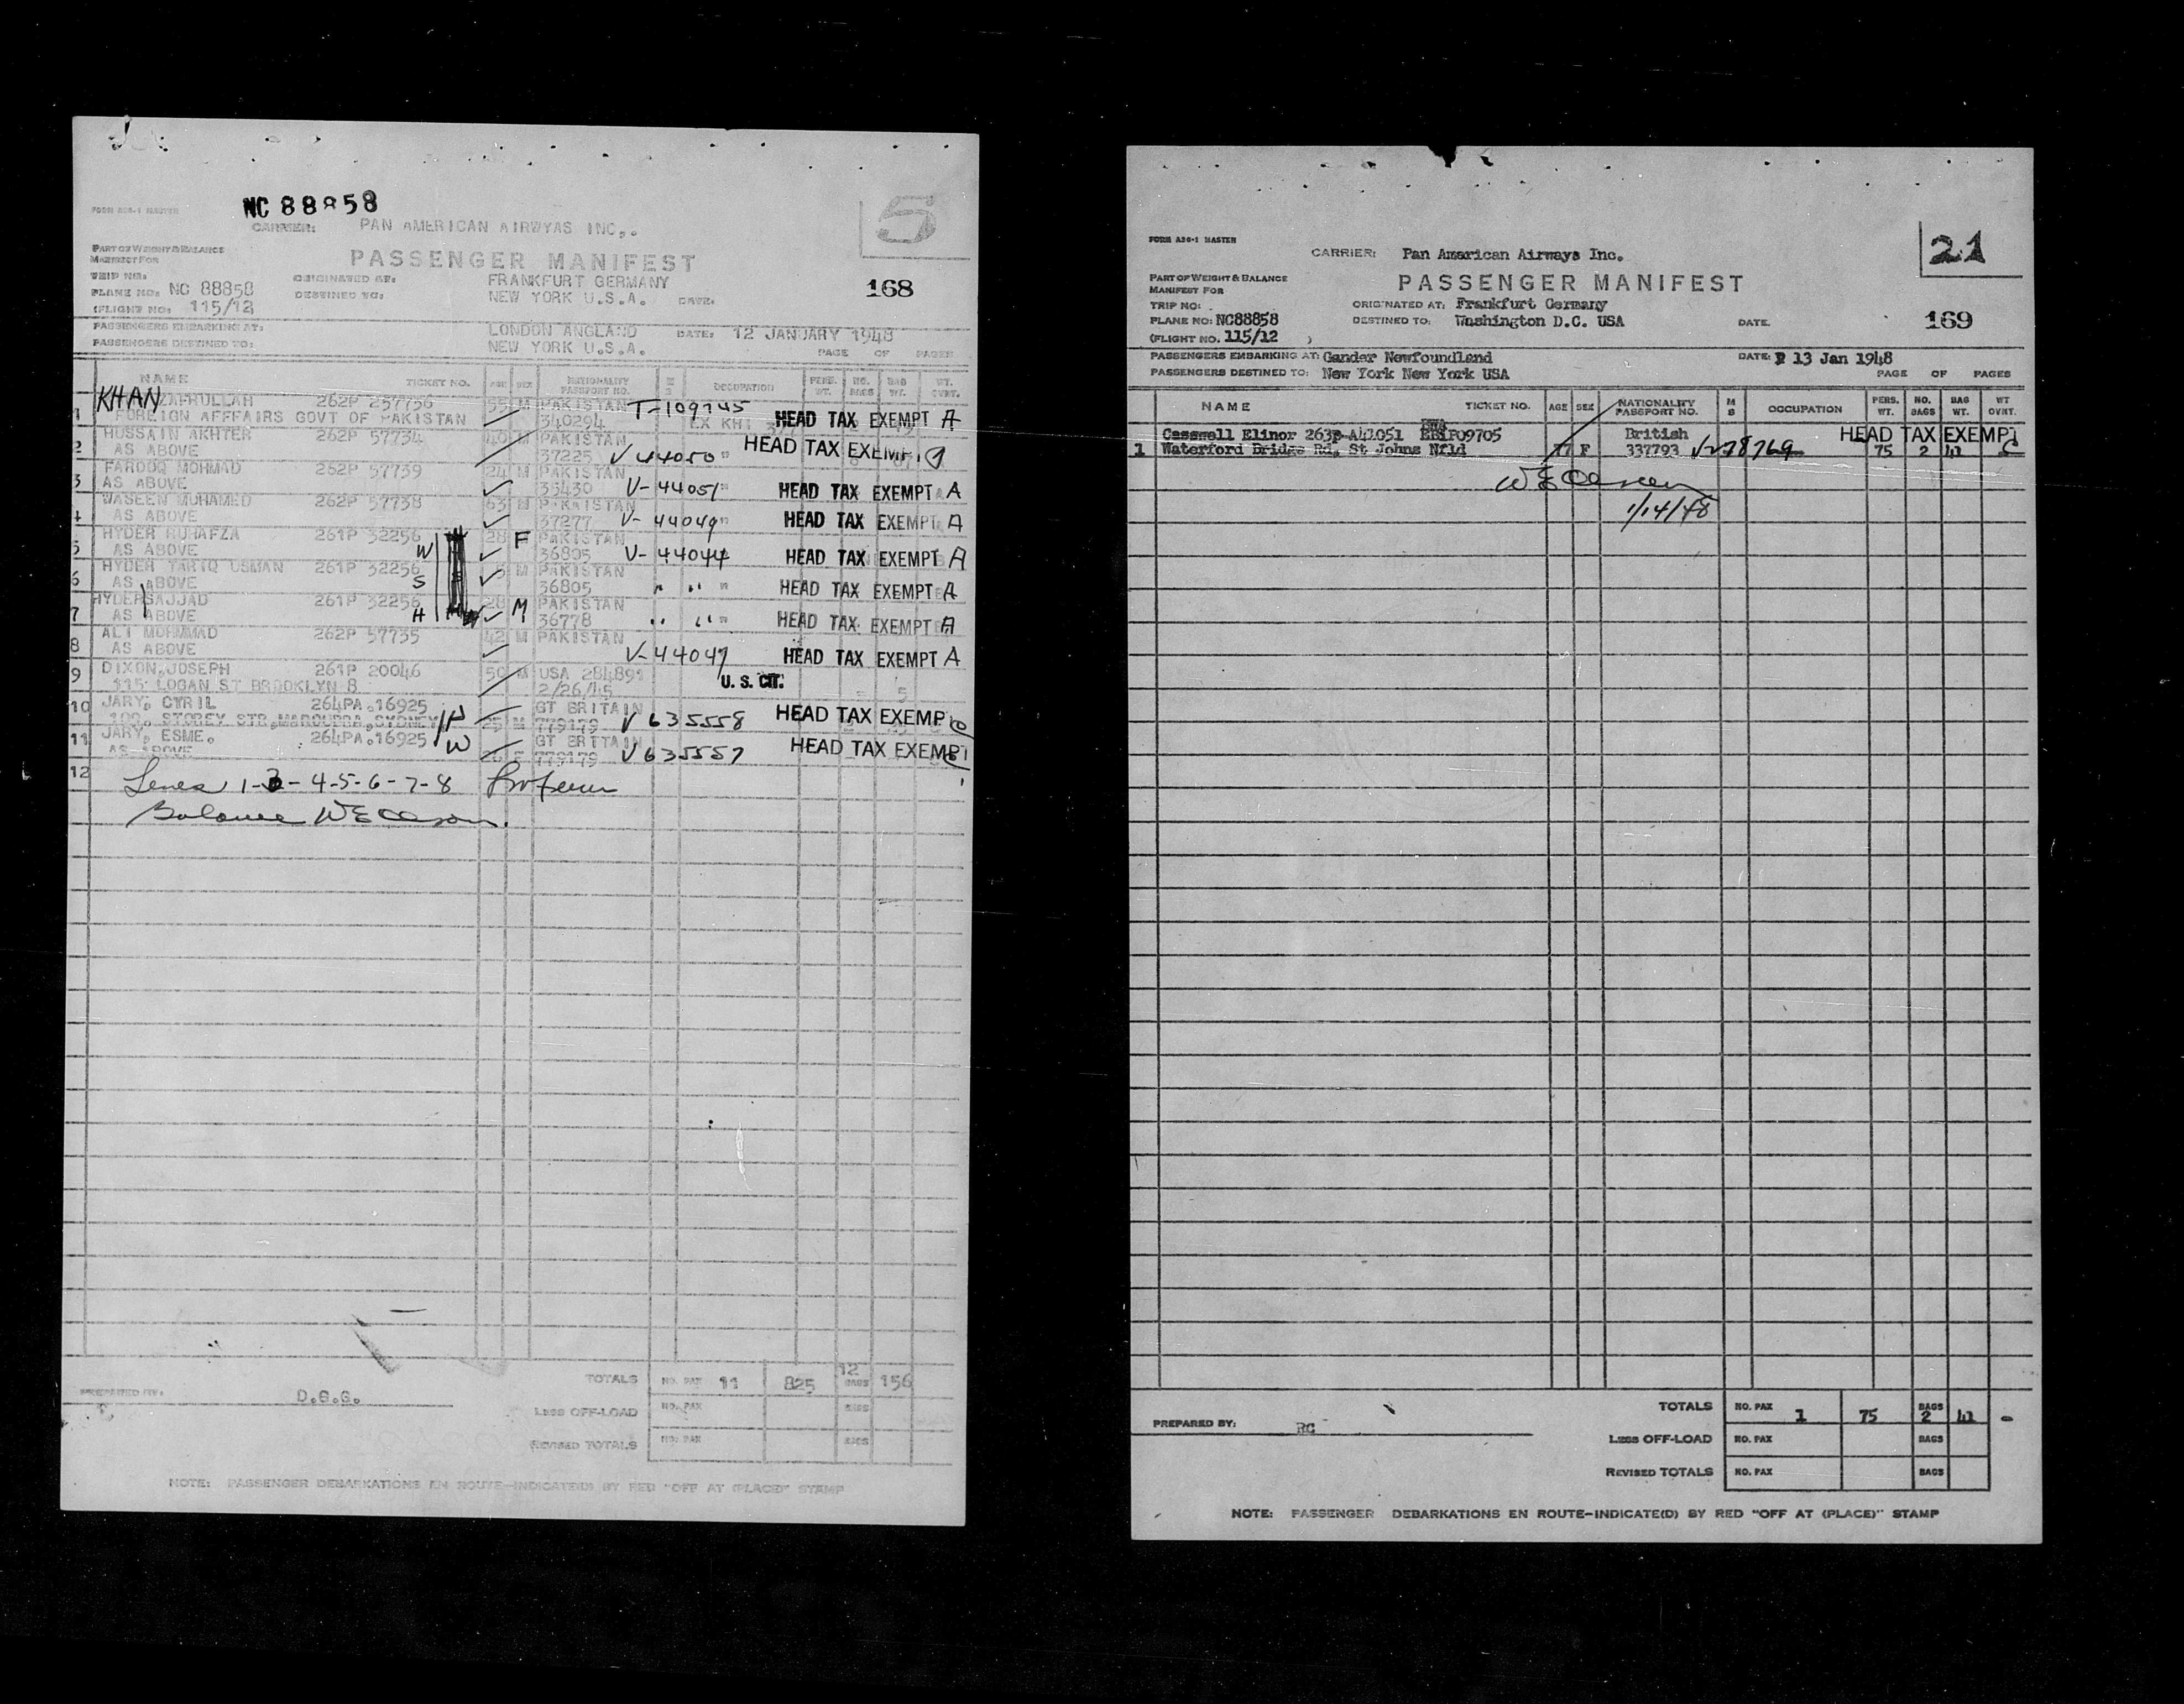 NC 88858
5
FORM A20-1 MASTER
CARRIER: PAN AMERICAN AIRWYAS INC,.
PART OF WEIGHT & BALANCE
MANIFEST FOR
PASSENGER MANIFEST
TRIP NO: ORIGINATED AT: FRANKFURT GERMANY
168
PLANE NO: NC 88858 DESTINED TO: NEW YORK U.S.A. DATE:
(FLIGHT NO: 115/12
PASSENGERS EMBARKING AT: LONDON ANGLAND DATE: 12 JANUARY 1948
PASSENGERS DESTINED TO: NEW YORK U.S.A. PAGE OF PAGES
NAME TICKET NO. AGE SEX NATIONALITY PASSPORT NO. M S OCCUPATION PERS. WT. NO. BAGS BAG WT. WT. OVNT.
KHAN ZAFRULLAH 262P 257756 55 M PAKISTAN T-109745
1 FOREIGN AFFFAIRS GOVT OF PAKISTAN 340294 EX KHI HEAD TAX EXEMPT A
HUSSAIN AKHTER 262P 57734 40 M PAKISTAN HEAD TAX EXEMP
2 37225 V 44050 "
FAROOQ MOHMAD 262P 57739 24 M PAKISTAN
3 AS ABOVE 35430 V-44051 " HEAD TAX EXEMPT A
WASEEN MUHAMED 262P 57738 63 M PAKAISTAN
4 AS ABOVE 37277 V-44049 " HEAD TAX EXEMPT A
HYDER RUHAFZA 261P 32256 28 F PAKISTAN
5 AS ABOVE W 36805 V-44044 HEAD TAX EXEMPT A
HYDER TARIQ USMAN 261P 32256 M PAKISTAN
6 AS ABOVE S 36805 " " " HEAD TAX EXEMPT A
HYDER SAJJAD 261P 32256 28 M PAKISTAN
7 AS ABOVE H 36778 " " " HEAD TAX EXEMPT A
ALI MOHMMAD 262P 57735 42 M PAKISTAN
8 AS ABOVE V-44047 HEAD TAX EXEMPT A
9 DIXON, JOSEPH 261P 20046 50 M USA 284891
315 LOGAN ST BROOKLYN 8 2/26/45 U. S. CIT. 5
10 JARY, CYRIL 264PA.16925 GT BRITAIN
109, STOREY STR, MAROUBRA, SYDNEY H 25 M 779179 V 635558 HEAD TAX EXEMP
11 JARY, ESME. 264PA.16925 GT BRITAIN
AS ABOVE W 26 F 779179 V 635557 HEAD TAX EXEMPT
12
1-3-4-5-6-7-8
Balance
TOTALS NO. PAX 11 825 12 BAGS 156
PREPARED BY: D.G.G.
LESS OFF-LOAD NO. PAX BAGS
REVISED TOTALS NO. PAX BAGS
NOTE: PASSENGER DEBARKATIONS EN ROUTE-INDICATE(D) BY RED "OFF AT (PLACE)" STAMP
21
FORM A20-1 MASTER
CARRIER: Pan American Airways Inc.
PART OF WEIGHT & BALANCE
MANIFEST FOR
PASSENGER MANIFEST
TRIP NO: ORIGINATED AT: Frankfurt Germany
PLANE NO: NC88858 DESTINED TO: Washington D.C. USA DATE. 169
(FLIGHT NO. 115/12 )
PASSENGERS EMBARKING AT: Gander Newfoundland DATE: 13 Jan 1948
PASSENGERS DESTINED TO: New York New York USA PAGE OF PAGES
NAME TICKET NO. AGE SEX NATIONALITY PASSPORT NO. M S OCCUPATION PERS. WT. NO. BAGS BAG WT. WT OVNT.
Casswell Elinor 263P-A41051 British HEAD TAX EXEMPT
1 Waterford Bridge Rd, St Johns Nfld 77 F 337793 75 2 41 C
1/14/48
TOTALS NO. PAX 1 75 BAGS 2 41 -
PREPARED BY: RC
LESS OFF-LOAD NO. PAX BAGS
REVISED TOTALS NO. PAX BAGS
NOTE: PASSENGER DEBARKATIONS EN ROUTE-INDICATE(D) BY RED "OFF AT (PLACE)" STAMP